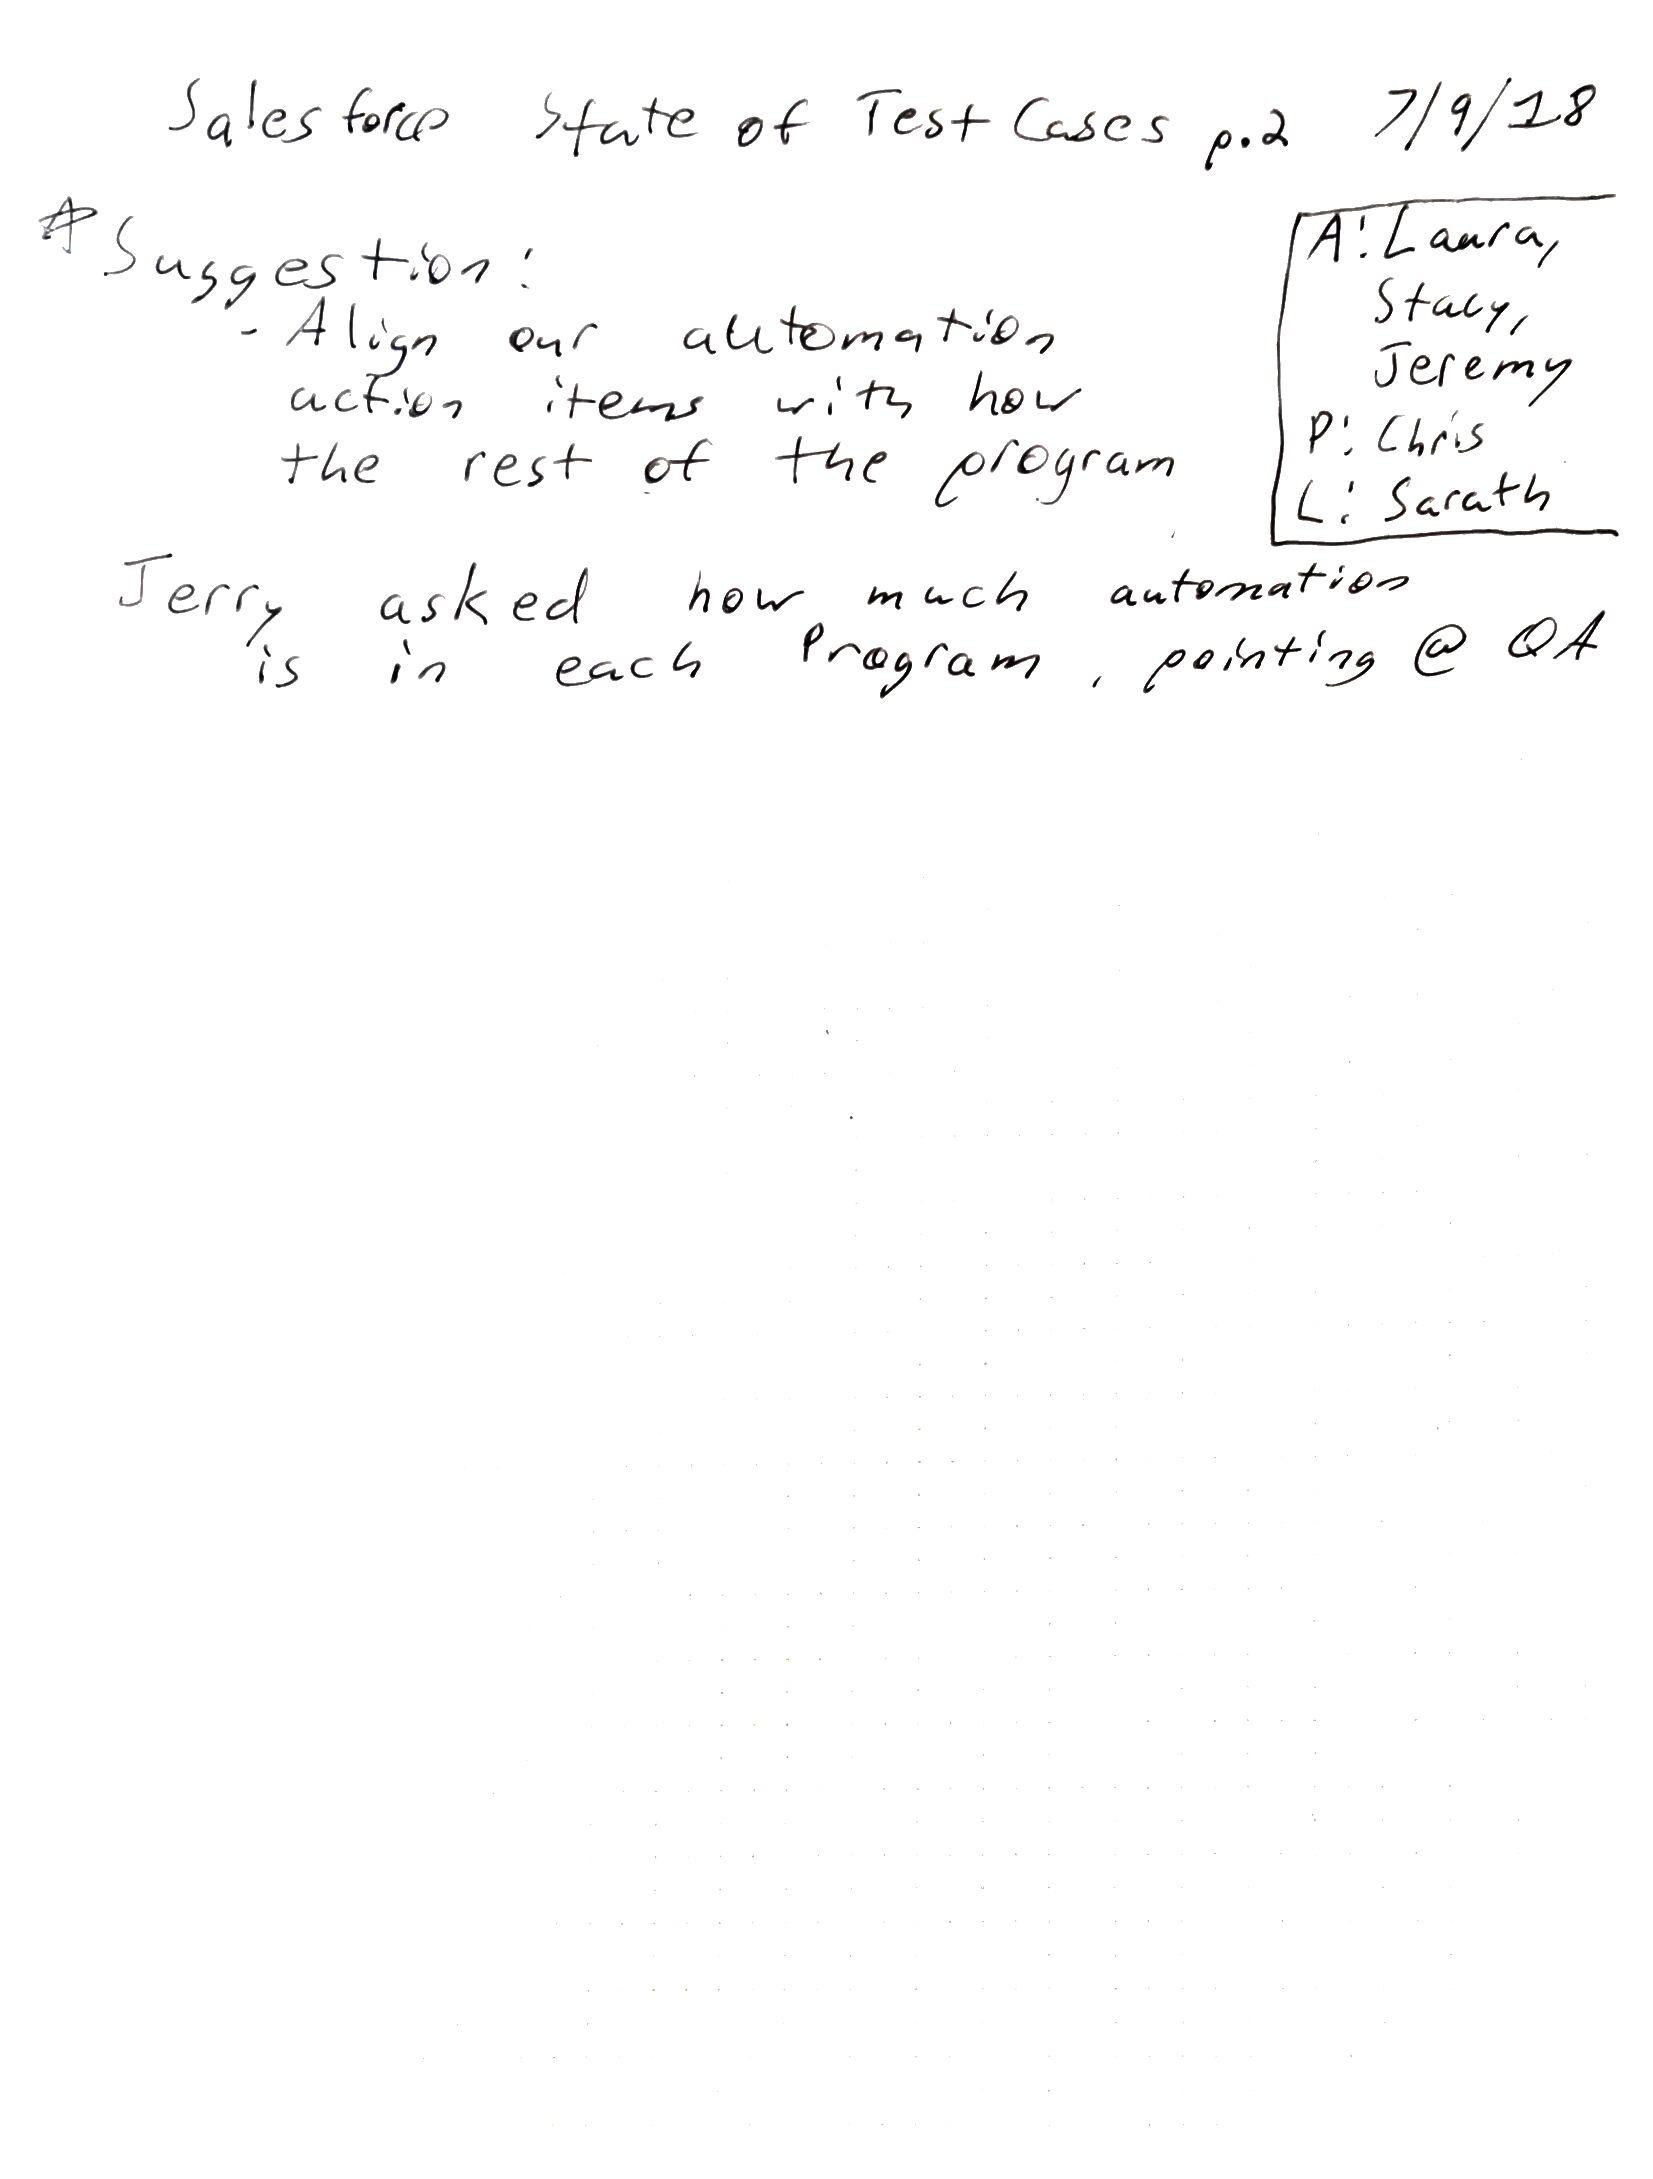 Salesforce State of Test Cases p.2 7/9/18
* Suggestion:
- Align our automation
action items with how
the rest of the program
A: Laura,
Stacy,
Jeremy
P: Chris
L: Sarath
Jerry asked how much automation
is in each Program, pointing @ QA